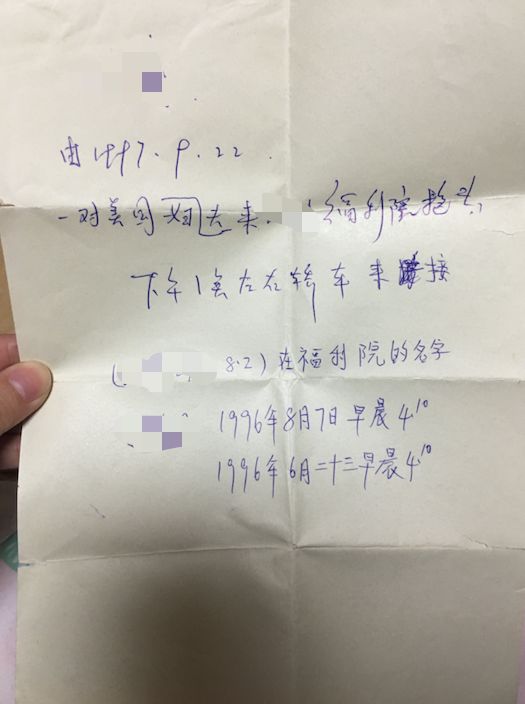 由1997.9.22.
一对美国夫妇来. 福利院抱养
下午1点左右轿车来接
( 8.2)在福利院的名字
1996年8月7日早晨4¹⁰
1996年6月二十三早晨4¹⁰